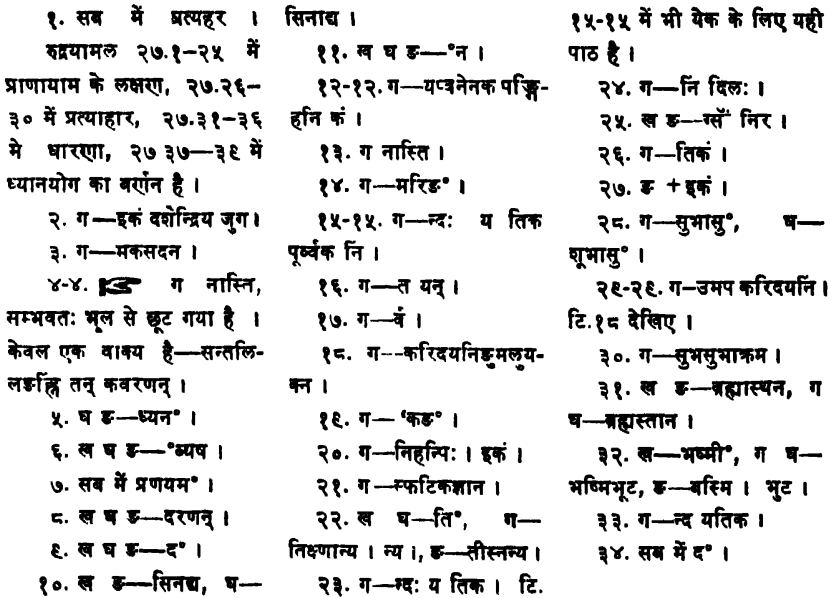 १. सब में प्रत्यहर ।
रुद्रयामल २७.१–२५ में
प्राणायाम के लक्षण, २७.२६–
३० में प्रत्याहार, २७.३१–३६
मे धारणा, २७ ३७—३९ में
ध्यानयोग का वर्णन है ।
२. ग—इकं दशेन्द्रिय जुग।
३. ग—मकसदन ।
४-४. ग नास्ति,
सम्भवतः भूल से छूट गया है ।
केवल एक वाक्य है—सन्तलि-
तन् कवरणन् ।
५. घ ङ—ध्यन° ।
६. ख घ ङ—°व्यष ।
७. सब में प्रणयम° ।
८. ख घ ङ—दरणन् ।
९. ख घ ङ—द° ।
१०. ख ङ—सिनद्य, घ—
सिनाद्य ।
११. ख घ ङ—°न ।
१२-१२. ग—यप्त्रनेनक पङ्गि-
हनि कं ।
१३. ग नास्ति ।
१४. ग—मरिङ° ।
१५-१५. ग—न्दः य तिक
पूर्व्वक नि ।
१६. ग—त यन् ।
१७. ग—र्व ।
१८. ग—करिदयनिङुमलुय-
क्न ।
१९. ग—'कङ° ।
२०. ग—निहन्पिः । इकं ।
२१. ग—स्फटिकज्ञान ।
२२. ख घ—ति°, ग—
तिक्ष्णान्य । न्य ।, ङ—तीस्नन्य ।
२३. ग—न्दः य तिक । टि.
१५-१५ में भी येक के लिए यही
पाठ है ।
२४. ग—नि दिलः ।
२५. ख ङ— निर ।
२६. ग—तिकं ।
२७. ङ +इकं ।
२८. ग—सुभासु°, घ—
शूभासु° ।
२९-२९. ग–उमप करिदयनि।
टि.१८ देखिए ।
३०. ग—सुभसुभाक्रम ।
३१. ख ङ—ब्रह्मास्थन, ग
घ—ब्रह्मस्तान ।
३२. ख—भष्मी°, ग घ—
भष्मिभूट, ङ—बस्मि । भुट ।
३३. ग—न्द यतिक ।
३४. सब में द° ।